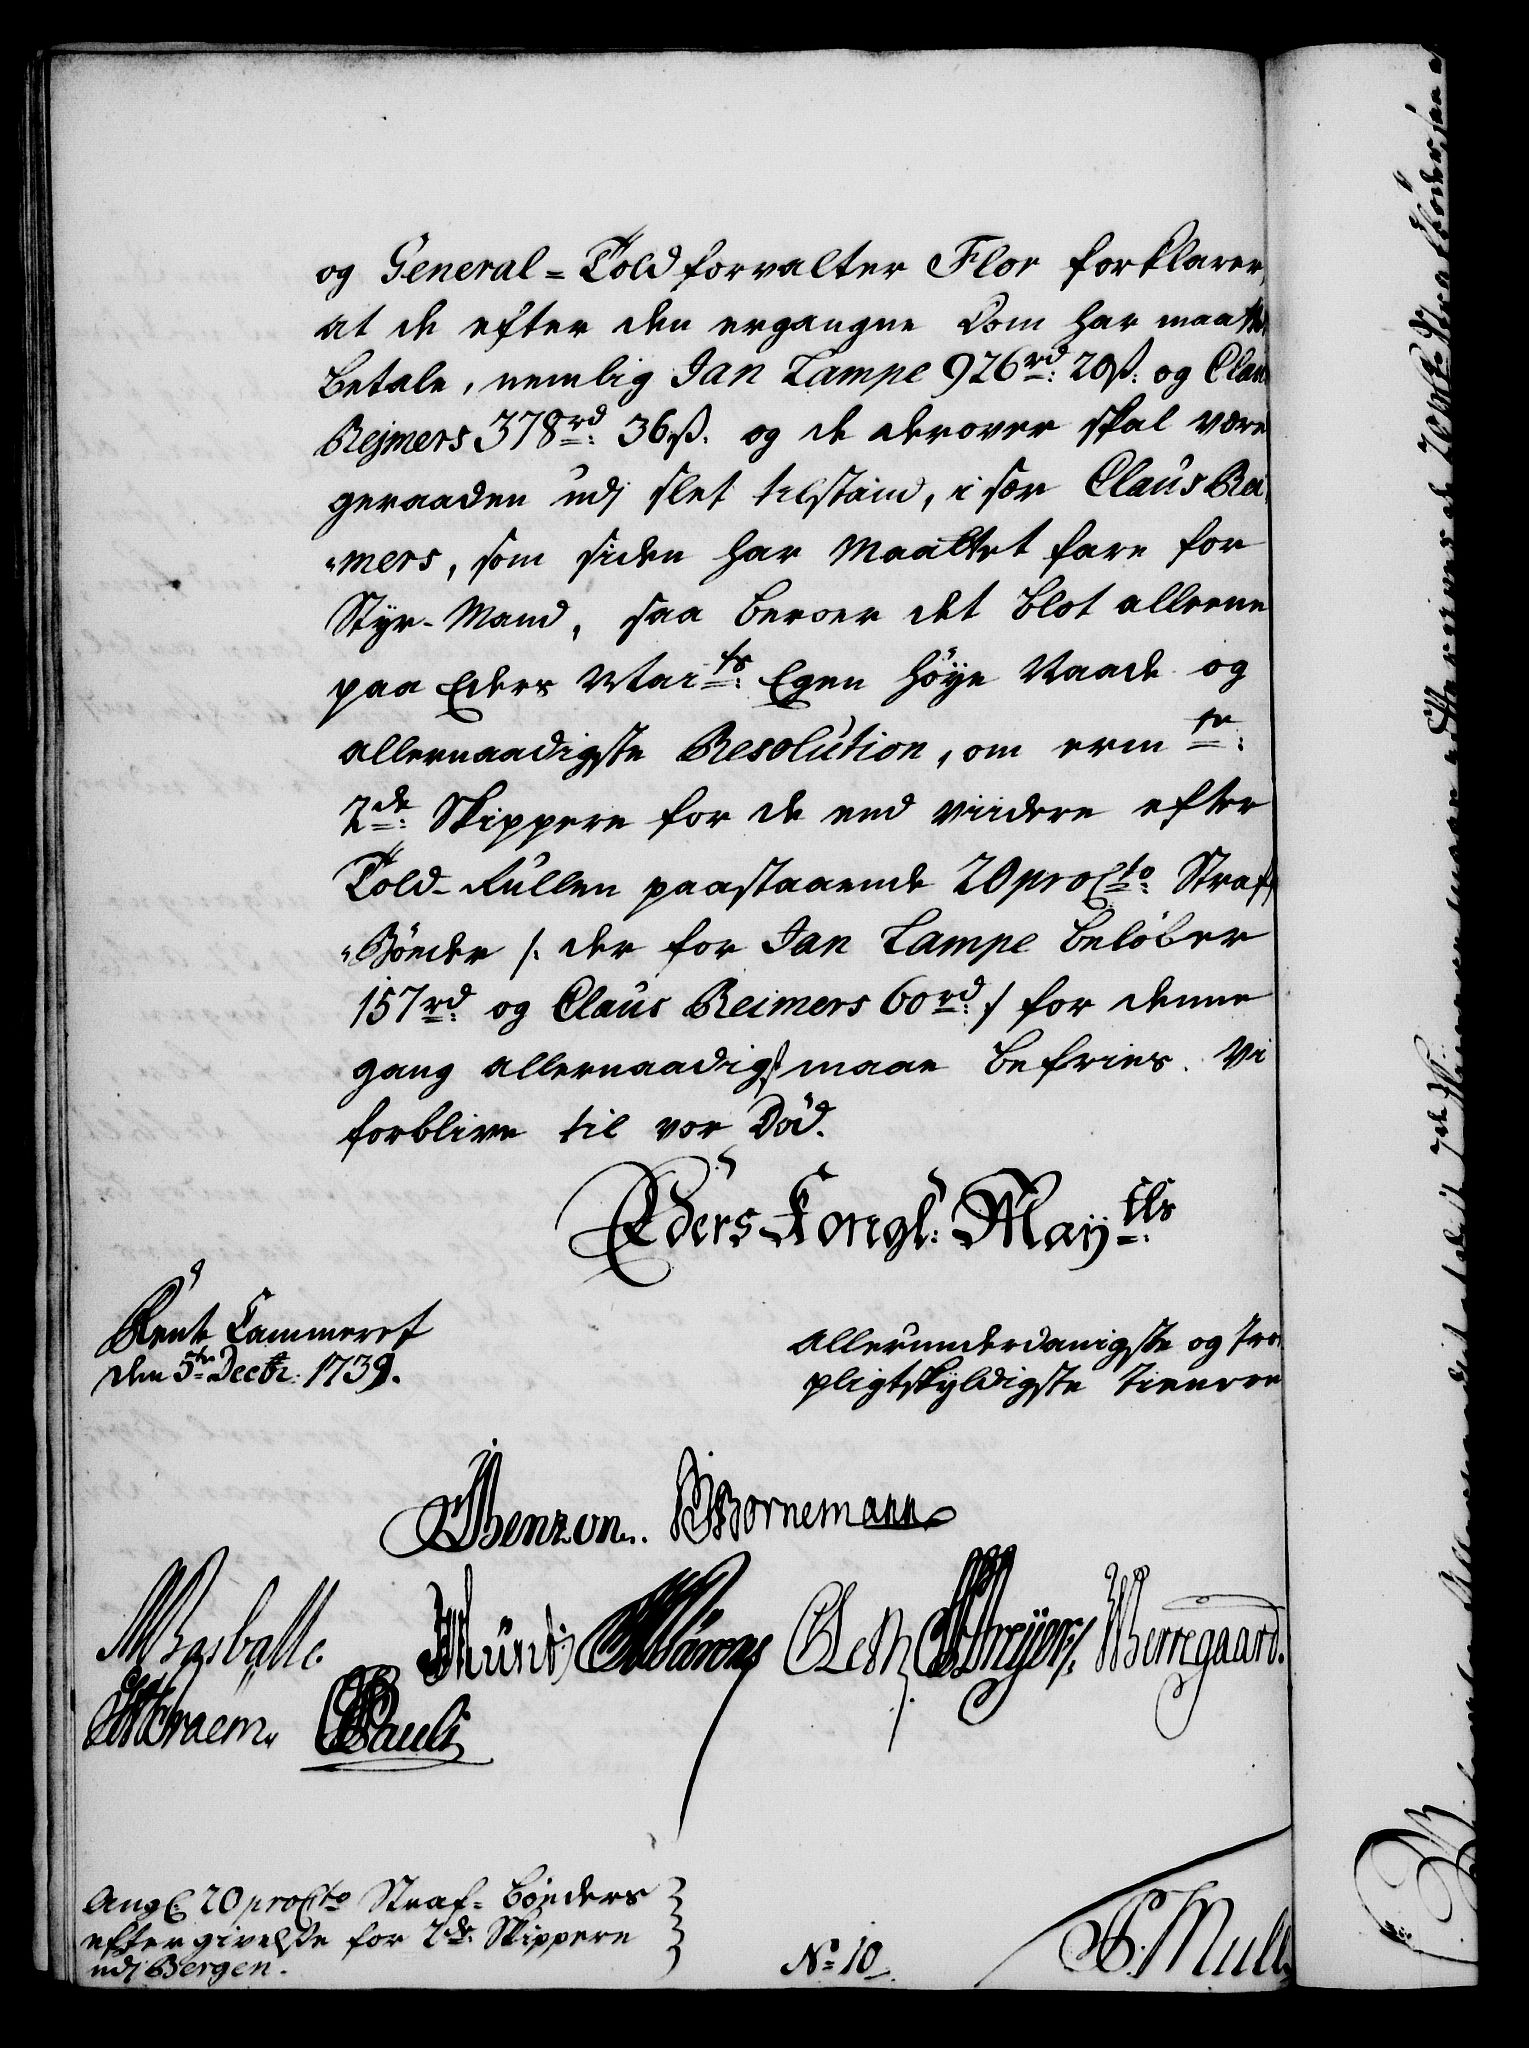 og General=Toldforvalter Flor forklarer,
at de efter den ergangne Dom har maattet
betale, nemlig Jan Lampe 926 rd: 20 ß: og Claus
Rejmers 378 rd: 36 ß. og de derover skal være
geraaden udj slet tilstand, i sær Claus Rei
"mers, som siden har maattet fare for
Styr-Mand, saa beroer det blot alleene
paa Eders Mai ts: Egen höye Naade og
allernaadigste Resolution, om erm te:
2de: Skippere for de end viidere efter
Told-Rullen paastaaende 20 proCto: Straf
"Böeder /: der for Jan Lampe belöber
157 rd: og Claus Reimers 60 rd: / for denne
gang allernaadigst maae befries. Vi
forblive til vor Död.
Eders Kongl: Maÿ tts:
Rente Cammeret
den 5te Decbr: 1739.
allerunderdanigste og tro
pligtskyldigste tienere
Benzon. Bornemann
Basballe. Münt Oeth Dreÿer Berregaard.
Kraem. Pauli
Ang: 20 proCto Straf=böeders
eftergivelse for 2de: Skippere
udj Bergen.
No 10.
S. Mull